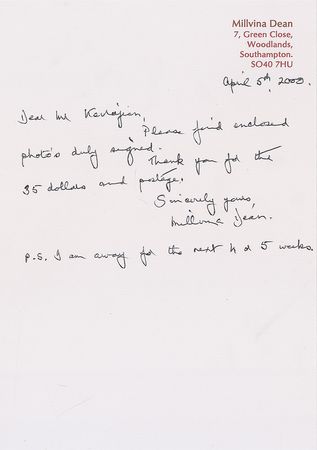 Millvina Dean
7, Green Close,
Woodlands,
Southampton.
SO40 7HU
April 5th, 2000.
Dear Mr
Please find enclosed
photo's duly signed. Thank you for the
35 dollars and postage.
Sincerely yours,
Millvina Dean.
P.S. I am away for the next 4 or 5 weeks.